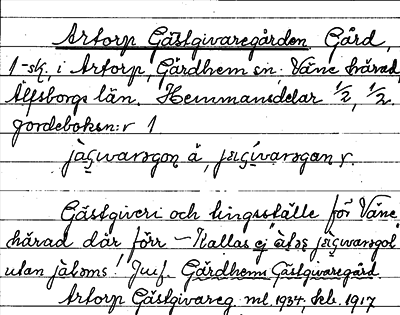 Artorp Gästgivaregården Gård,
1-sk, i Artorp, Gärdhem sn, Väne härad,
Älfsborgs län. Hemmansdelar 1/2, 1/2.
Jordeboksn:r 1
jäʂwarəgoɳ å,
Gästgiveri och tingsställe för Väne
härad där förr – Kallas ej
utan jätoms! Jmf. Gärdhems Gästgivaregård.
Artorp Gästgivareg. ml. 1934, skb. 1917